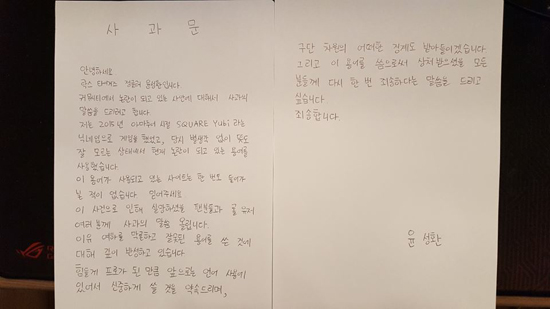 사 과 문
안녕하세요
락스 타이거즈 정글러 윤성환입니다
커뮤니티에서 논란이 되고 있는 사건에 대해서 사과의
말씀을 드리려고 합니다
저는 2015년 아마추어 시절 SQUARE Yuki 라는
닉네임으로 게임을 했었고, 당시 별생각 없이 뜻도
잘 모르는 상태에서 현재 논란이 되고 있는 용어를
사용했습니다
이 용어가 사용되고 있는 사이트는 한 번도 들어가
본 적이 없습니다 믿어주세요
이 사건으로 인해 실망하셨을 팬분들과 관계자
여러분께 사과의 말씀 올립니다
이유 여하를 막론하고 잘못된 용어를 쓴 것에
대해 깊이 반성하고 있습니다
힘들게 프로가 된 만큼 앞으로는 언어 사용에
있어서 신중하게 쓸 것을 약속드리며,
구단 차원의 어떠한 징계도 받아들이겠습니다
그리고 이 용어를 씀으로써 상처 받으셨을 모든
분들께 다시 한 번 죄송하다는 말씀을 드리고
싶습니다
죄송합니다
윤 성환